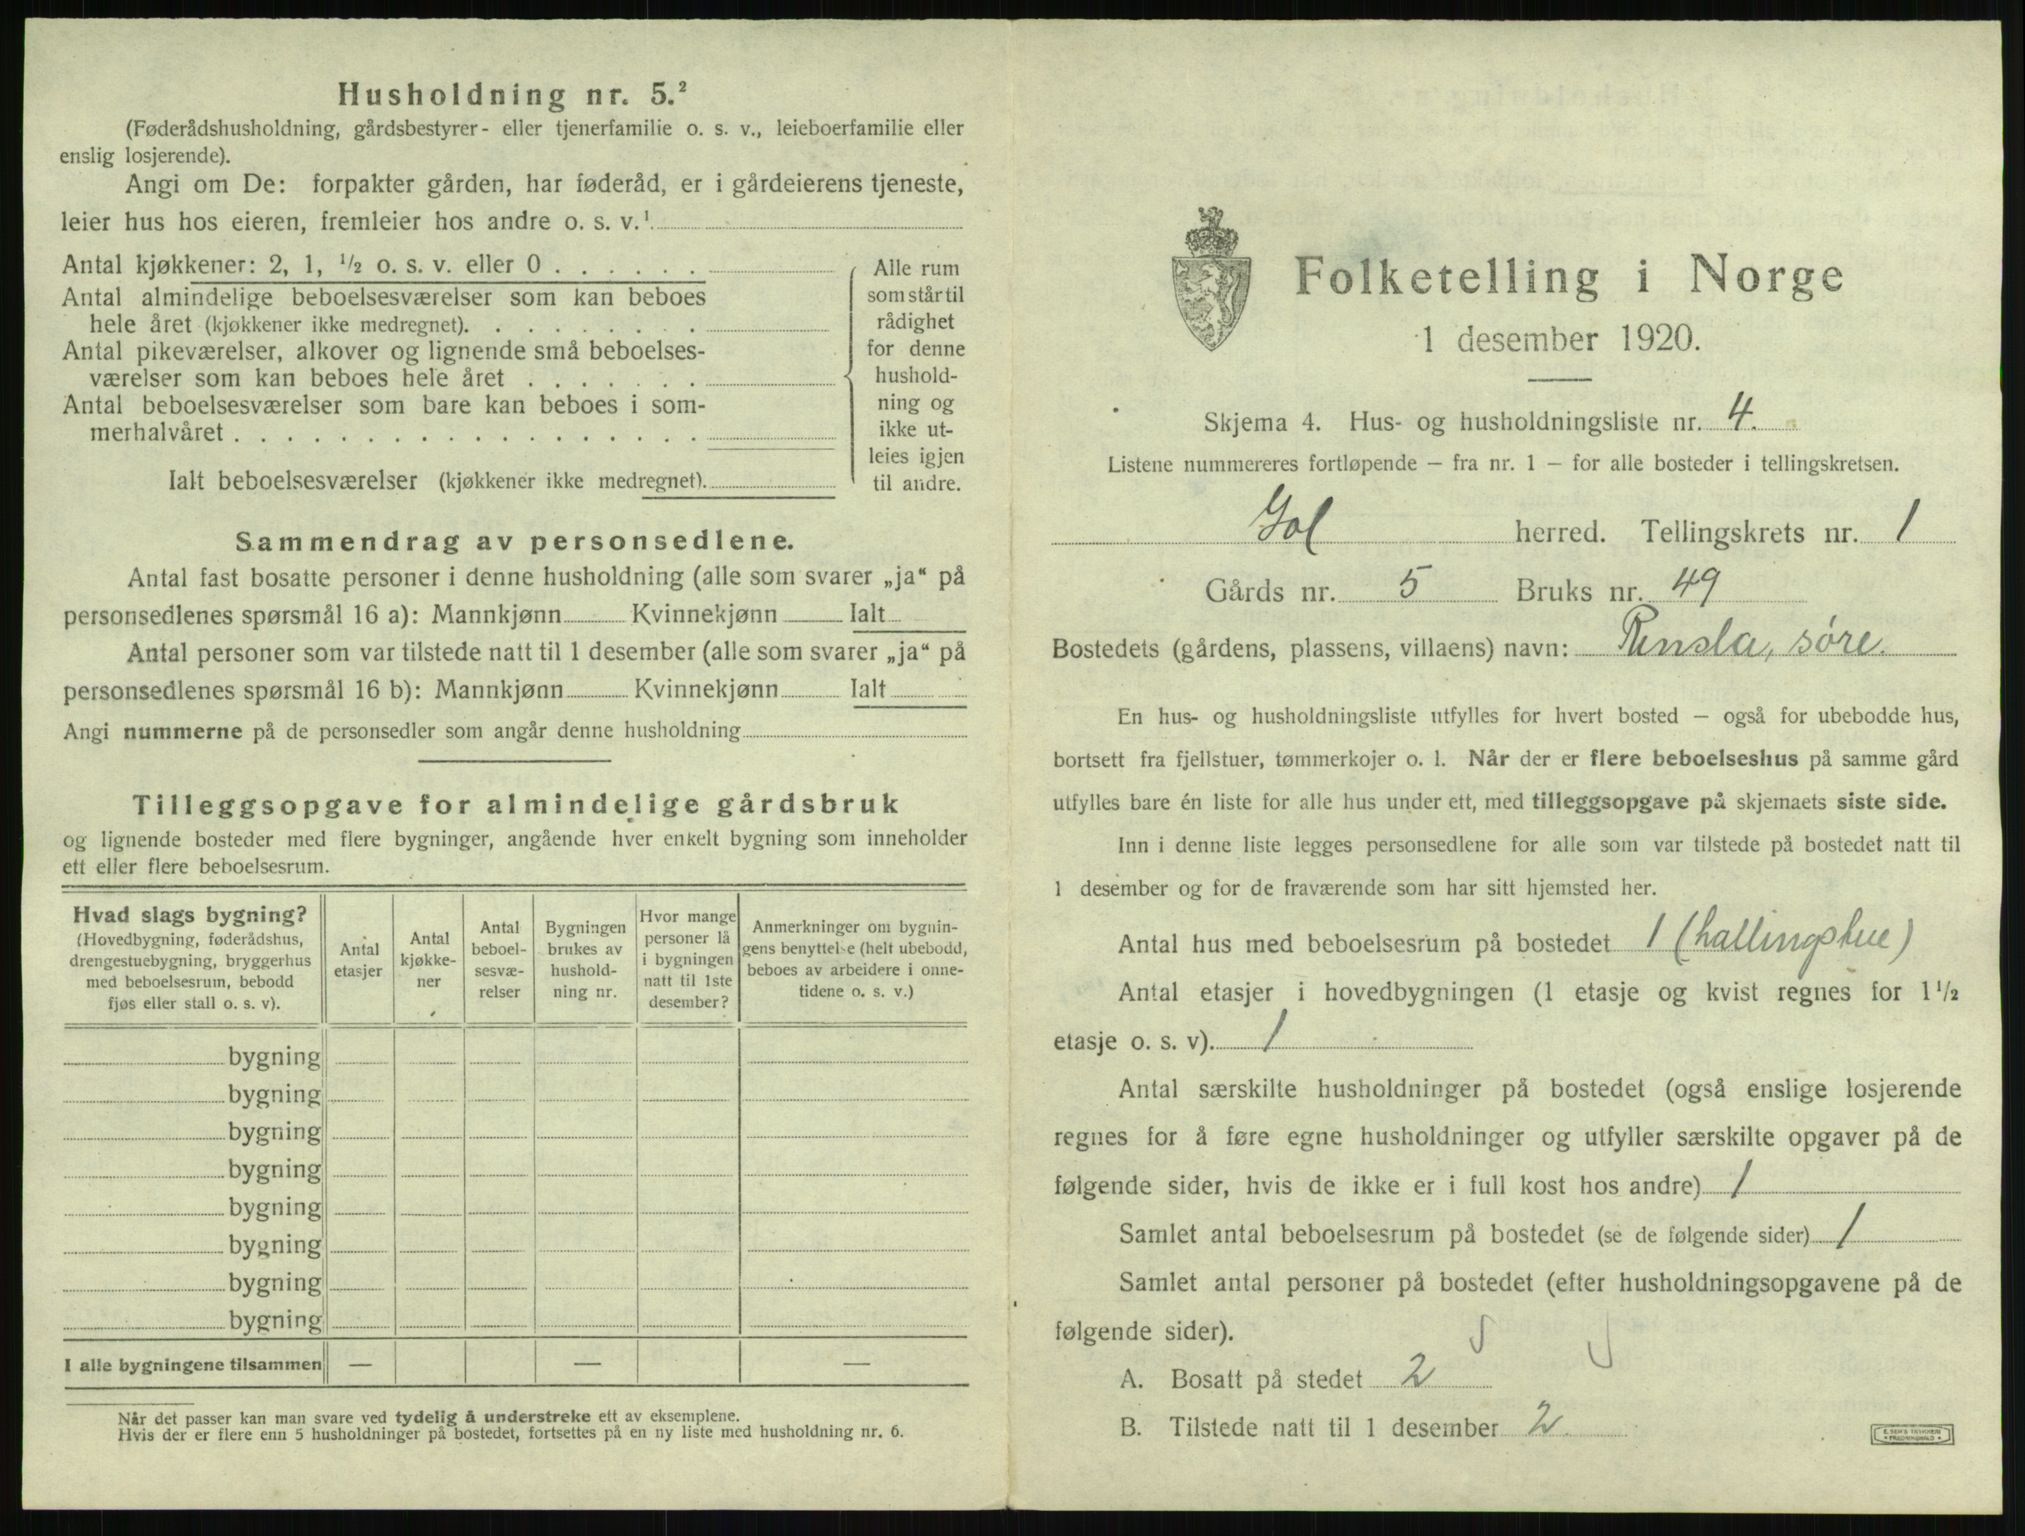 Husholdning nr. 5.²
(Føderådshusholdning, gårdsbestyrer- eller tjenerfamilie o. s. v., leieboerfamilie eller
enslig losjerende).
Angi om De: forpakter gården, har føderåd, er i gårdeierens tjeneste,
leier hus hos eieren, fremleier hos andre o. s. v.¹
Antal kjøkkener: 2, 1, ½ o. s. v. eller 0 . . . . . .
Antal almindelige beboelsesværelser som kan beboes
hele året (kjøkkener ikke medregnet). . . . . . . . .
Antal pikeværelser, alkover og lignende små beboelses-
værelser som kan beboes hele året . . . . . . .
Antal beboelsesværelser som bare kan beboes i som-
merhalvåret . . . . . . . . . . . . . . . . . .
Ialt beboelsesværelser (kjøkkener ikke medregnet).
Alle rum
som står til
rådighet
for denne
hushold-
ning og
ikke ut-
leies igjen
til andre.
Sammendrag av personsedlene.
Antal fast bosatte personer i denne husholdning (alle som svarer „ja“ på
personsedlenes spørsmål 16 a): Mannkjønn Kvinnekjønn Ialt
Antal personer som var tilstede natt til 1 desember (alle som svarer „ja“ på
personsedlenes spørsmål 16 b): Mannkjønn Kvinnekjønn Ialt
Angi nummerne på de personsedler som angår denne husholdning
Tilleggsopgave for almindelige gårdsbruk
og lignende bosteder med flere bygninger, angående hver enkelt bygning som inneholder
ett eller flere beboelsesrum.
Hvad slags bygning?
(Hovedbygning, føderådshus,
drengestuebygning, bryggerhus
med beboelsesrum, bebodd
fjøs eller stall o. s. v).
Antal
etasjer
Antal
kjøkke-
ner
Antal
beboel-
sesvæ-
relser
Bygningen
brukes av
hushold-
ning nr.
Hvor mange
personer lå
i bygningen
natt til 1ste
desember?
Anmerkninger om bygnin-
gens benyttelse (helt ubebodd,
beboes av arbeidere i onne-
tidene o. s. v.)
bygning
bygning
bygning
bygning
bygning
bygning
bygning
bygning
I alle bygningene tilsammen — — —
Når det passer kan man svare ved tydelig å understreke ett av eksemplene.
Hvis der er flere enn 5 husholdninger på bostedet, fortsettes på en ny liste med husholdning nr. 6.
Folketelling i Norge
1 desember 1920.
Skjema 4. Hus- og husholdningsliste nr. 4.
Listene nummereres fortløpende — fra nr. 1 — for alle bosteder i tellingskretsen.
Gol herred. Tellingskrets nr. 1
Gårds nr. 5 Bruks nr. 49
Bostedets (gårdens, plassens, villaens) navn: søre.
En hus- og husholdningsliste utfylles for hvert bosted — også for ubebodde hus,
bortsett fra fjellstuer, tømmerkojer o. l. Når der er flere beboelseshus på samme gård
utfylles bare én liste for alle hus under ett, med tilleggsopgave på skjemaets siste side.
Inn i denne liste legges personsedlene for alle som var tilstede på bostedet natt til
1 desember og for de fraværende som har sitt hjemsted her.
Antal hus med beboelsesrum på bostedet 1 (hallingstue)
Antal etasjer i hovedbygningen (1 etasje og kvist regnes for 1½
etasje o. s. v). 1
Antal særskilte husholdninger på bostedet (også enslige losjerende
regnes for å føre egne husholdninger og utfyller særskilte opgaver på de
følgende sider, hvis de ikke er i full kost hos andre) 1
Samlet antal beboelsesrum på bostedet (se de følgende sider) 1
Samlet antal personer på bostedet (efter husholdningsopgavene på de
følgende sider).
A. Bosatt på stedet 2
B. Tilstede natt til 1 desember 2.